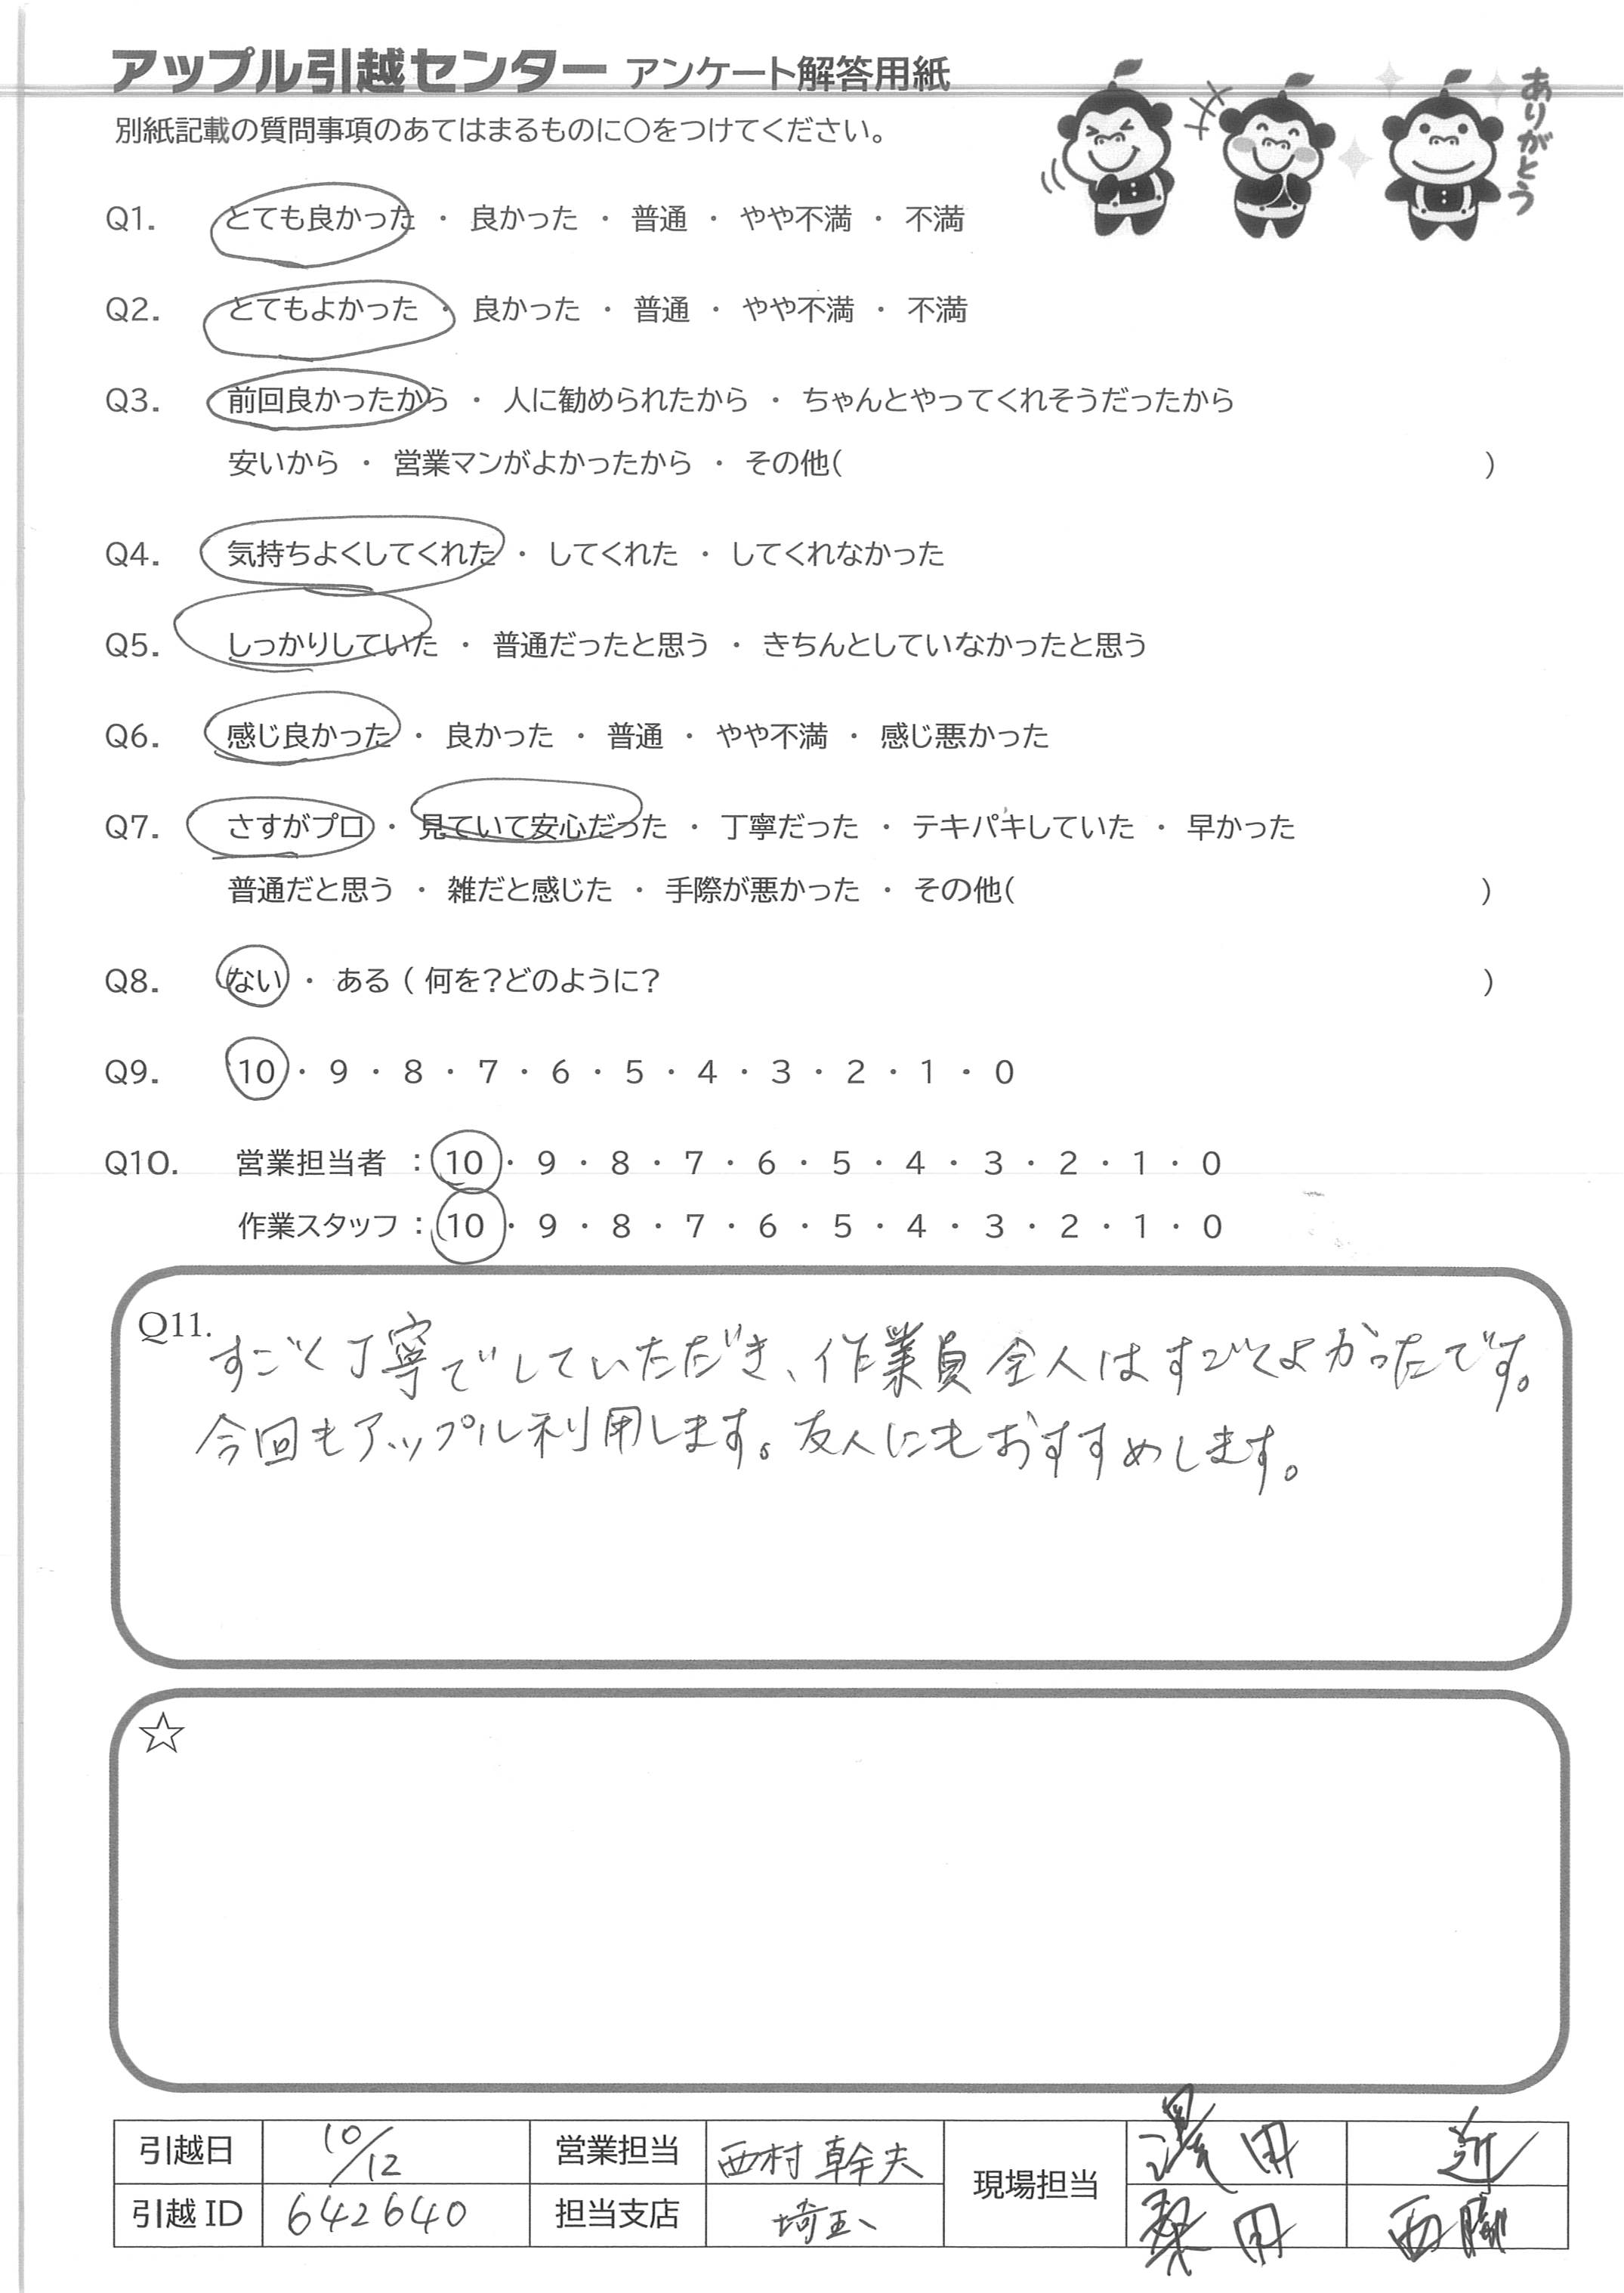 アップル引越センター アンケート解答用紙
ありがとう
別紙記載の質問事項のあてはまるものに○をつけてください。
Q1. とても良かった ・ 良かった ・ 普通 ・ やや不満 ・ 不満
Q2. とてもよかった ・ 良かった ・ 普通 ・ やや不満 ・ 不満
Q3. 前回良かったから ・ 人に勧められたから ・ ちゃんとやってくれそうだったから
安いから ・ 営業マンがよかったから ・ その他( )
Q4. 気持ちよくしてくれた ・ してくれた ・ してくれなかった
Q5. しっかりしていた ・ 普通だったと思う ・ きちんとしていなかったと思う
Q6. 感じ良かった ・ 良かった ・ 普通 ・ やや不満 ・ 感じ悪かった
Q7. さすがプロ ・ 見ていて安心だった ・ 丁寧だった ・ テキパキしていた ・ 早かった
普通だと思う ・ 雑だと感じた ・ 手際が悪かった ・ その他( )
Q8. ない ・ ある ( 何を?どのように? )
Q9. 10 ・ 9 ・ 8 ・ 7 ・ 6 ・ 5 ・ 4 ・ 3 ・ 2 ・ 1 ・ 0
Q10. 営業担当者 : 10 ・ 9 ・ 8 ・ 7 ・ 6 ・ 5 ・ 4 ・ 3 ・ 2 ・ 1 ・ 0
作業スタッフ : 10 ・ 9 ・ 8 ・ 7 ・ 6 ・ 5 ・ 4 ・ 3 ・ 2 ・ 1 ・ 0
Q11. すごく丁寧でしていただき、作業員全人はすごくよかったです。
今回もアップル利用します。友人にもおすすめします。
☆
引越日 10/12 営業担当 西村 幹夫 現場担当 近
引越 ID 642640 担当支店 埼玉 西脇